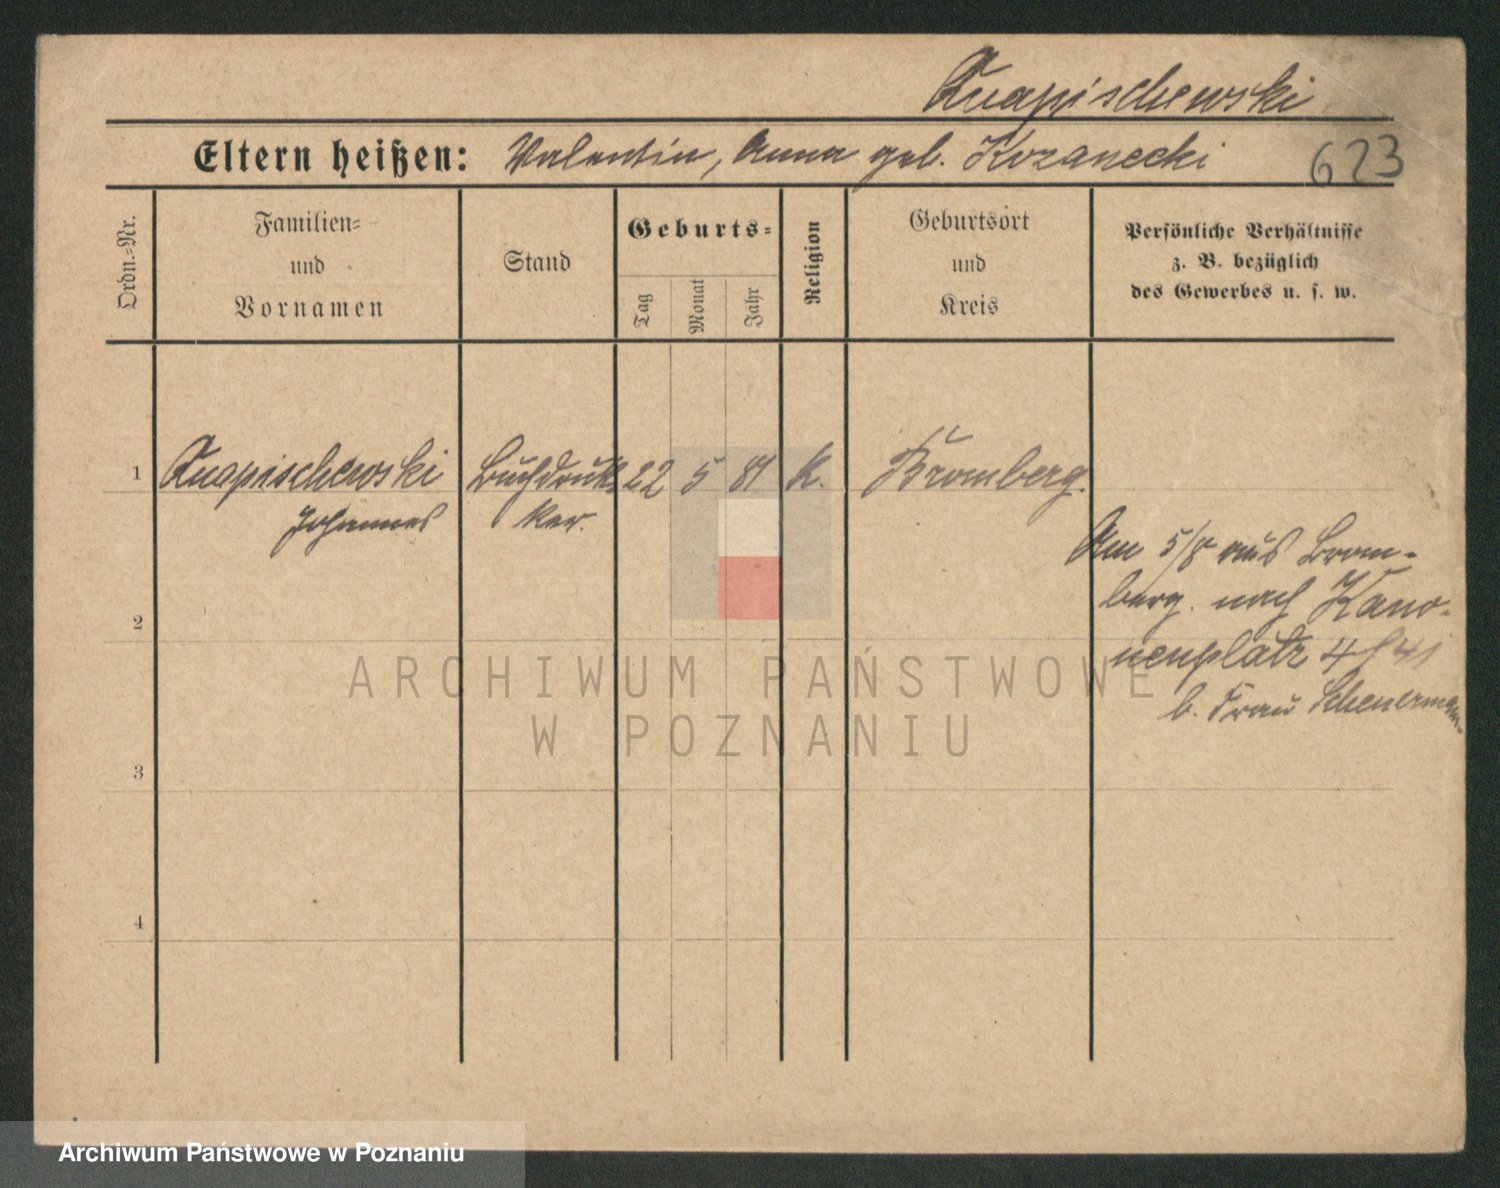 Knapischewski
Eltern heißen: Valentin, Anna geb. Kozanecki
623
Ordn.=Nr.
Familien=
und
Vornamen
Stand
Geburts=
Tag
Monat
Jahr
Religion
Geburtsort
und
Kreis
Persönliche Verhältnisse
z. B. bezüglich
des Gewerbes u. s. w.
1 Knapischewski Buchdruk- 22 5 81 K. Bromberg.
Johannes ker.
Am 5/8 aus Brom-
berg. nach Kano-
2
nenplatz 4
b. Frau Scheuermann
3
4
ARCHIWUM PAŃSTWOWE
W POZNANIU
Archiwum Państwowe w Poznaniu